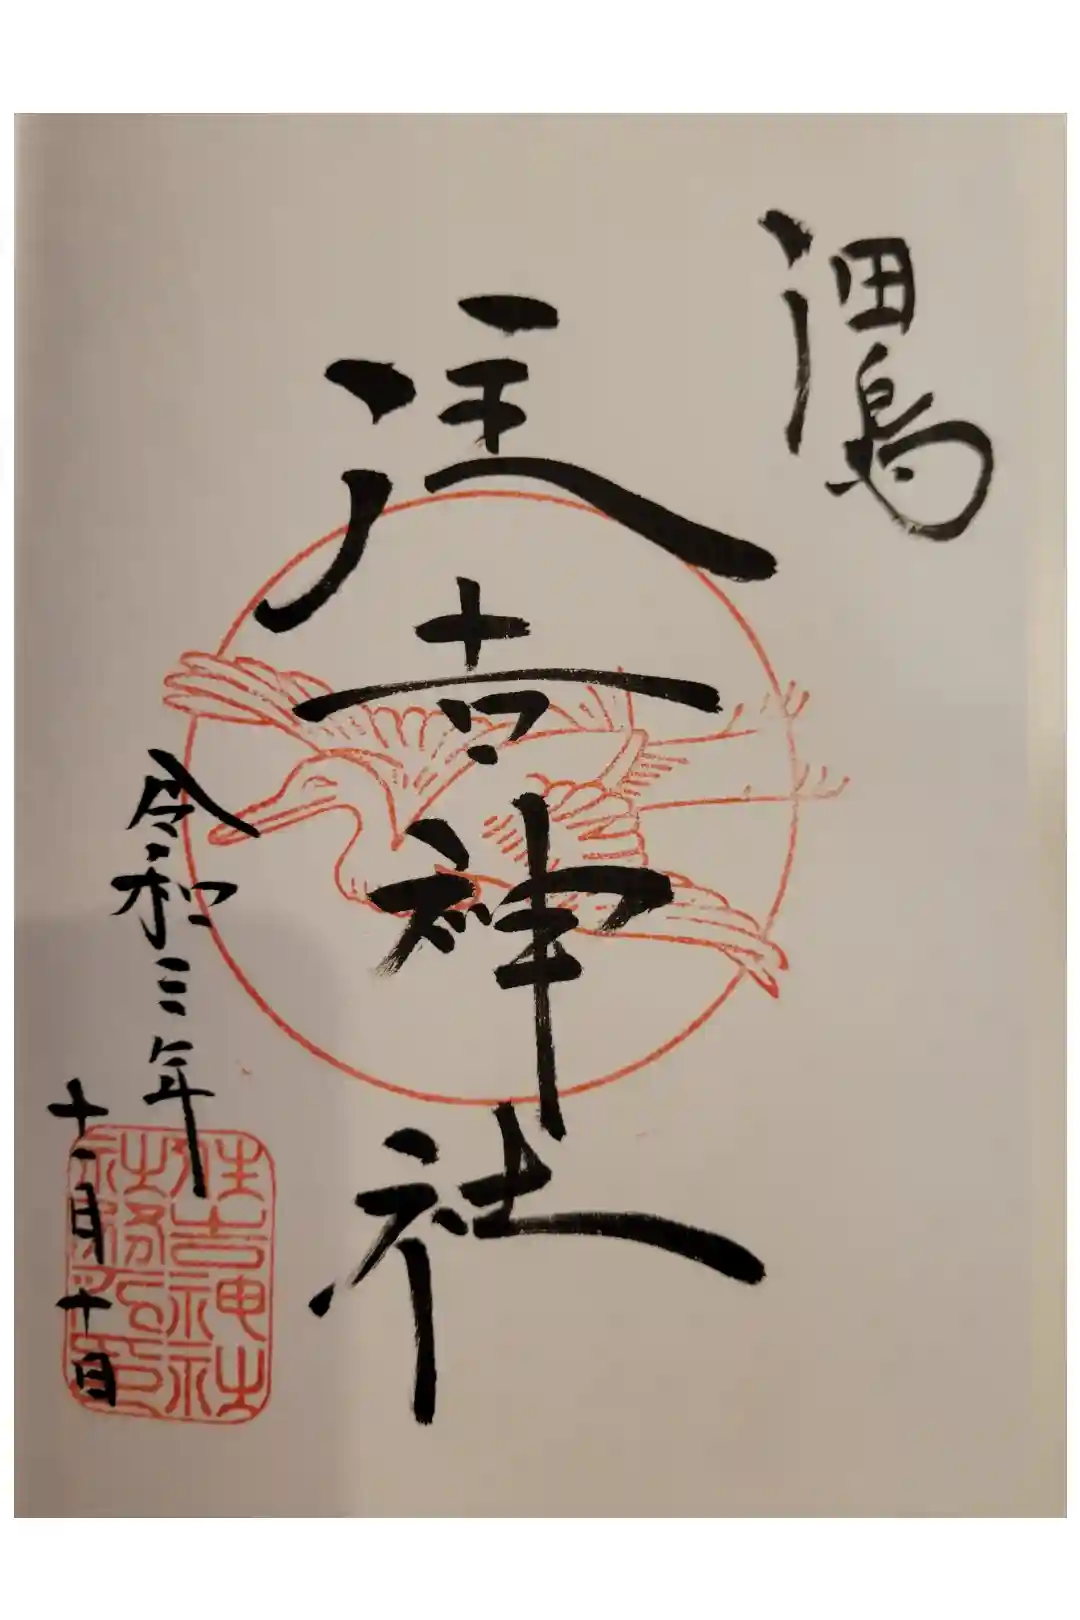 佃島
住吉神社
令和三年
十一月十日
住吉神社
社務所印